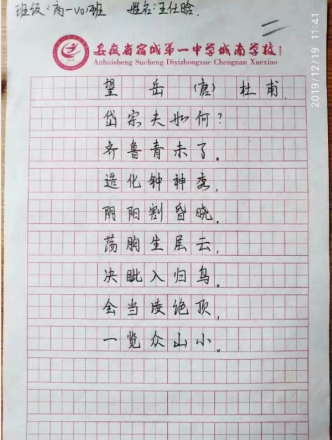 班级:高一(10)班 姓名:王仕晗.
二
安徽省宿城第一中学城南学校
Anhuisheng Sucheng Diyizhongxue Chengnan Xuexiao
望 岳 (唐) 杜甫
岱宗夫如何?
齐鲁青未了。
造化钟神秀,
阴阳割昏晓。
荡胸生层云,
决眦入归鸟。
会当凌绝顶,
一览众山小。
2019/12/19 11:41